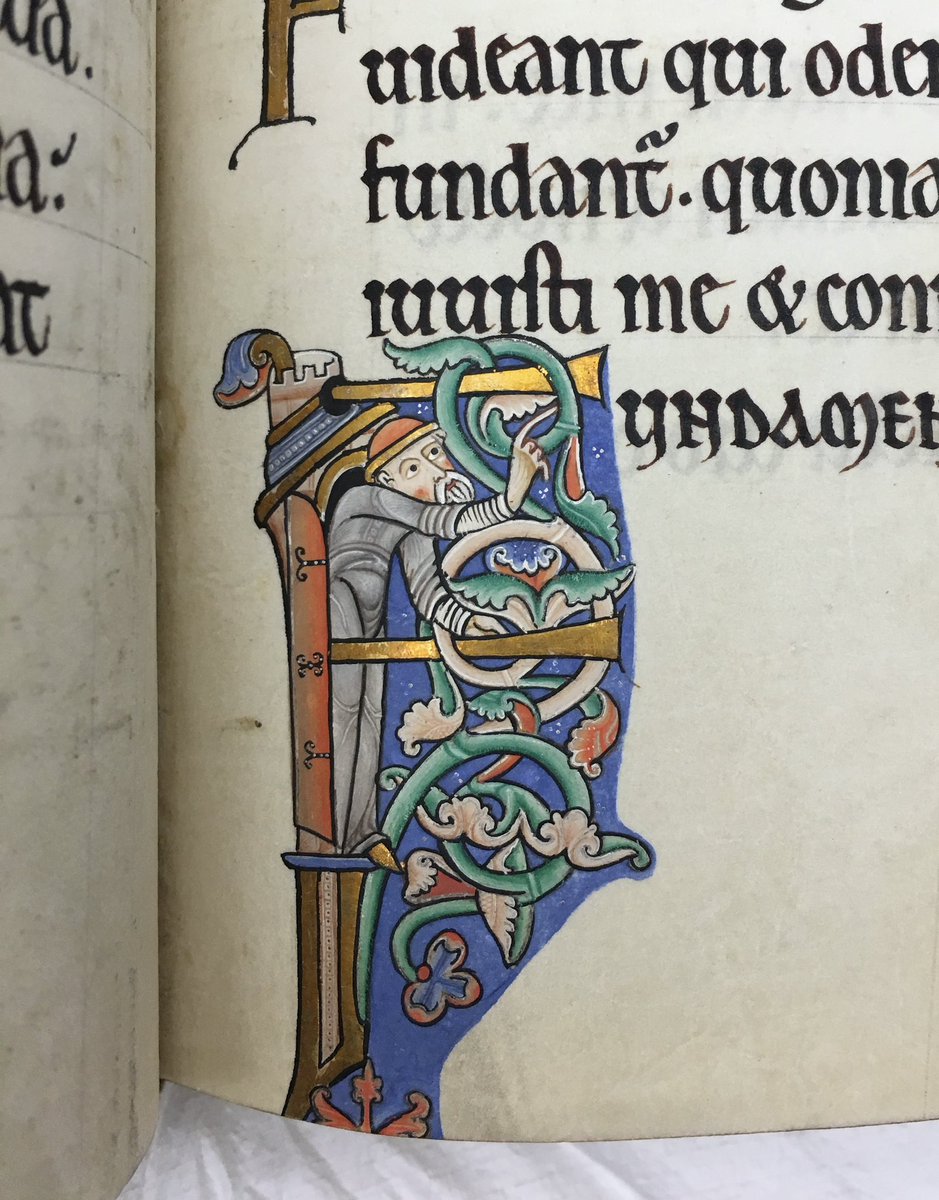 F
uideant qui oder
fundant̃. quonia
iuuisti me & con
FUNDAMEN